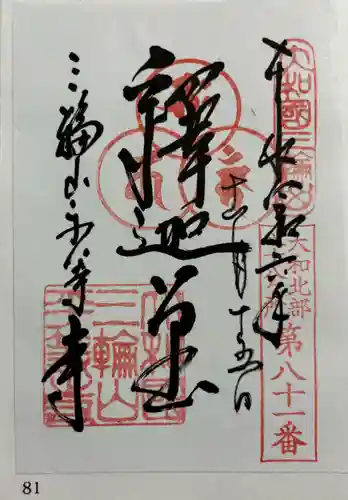 大和國三輪山
大和北部
第八十一番
奉拝 令和六年
十一月十五日
釋迦
三輪山平等寺
三輪山
81